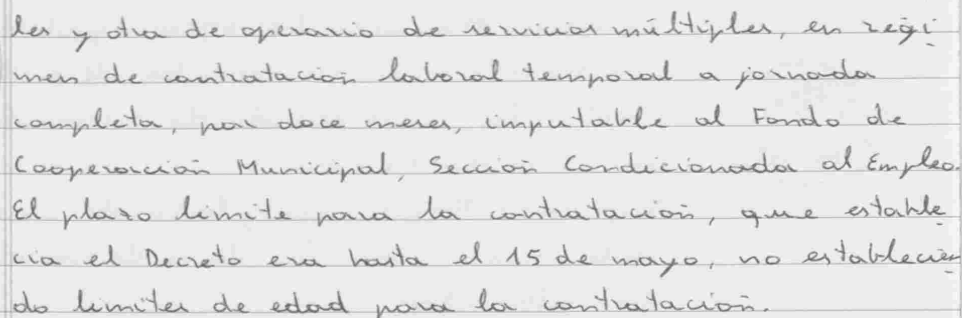 les y otra de operario de servicios múltiples, en regi
men de contratación laboral temporal a jornada
completa, por doce meses, imputable al Fondo de
Cooperación Municipal, Sección Condicionada al Empleo.
El plazo limite para la contratación, que estable
cia el Decreto era hasta el 15 de mayo, no establecien
do limites de edad para la contratación.